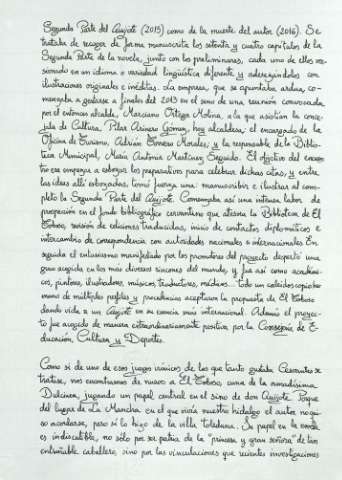 Segunda Parte del Quijote (2015) como de la muerte del autor (2016). Se
trataba de recoger de forma manuscrita los setenta y cuatro capítulos de la
Segunda Parte de la novela, junto con los preliminares, cada uno de ellos ver-
sionado en un idioma o variedad lingüística diferente y aderezándolos con
ilustraciones originales e inéditas. La empresa, que se apuntaba ardua, co-
menzaba a gestarse a finales del 2013 en el seno de una reunión convocada
por el entonces alcalde, Marciano Ortega Molina, a la que asistían la conce-
jala de Cultura, Pilar Arinero Gómez, hoy alcaldesa; el encargado de la
Oficina de Turismo, Adrián Morales; y la responsable de la Biblio-
teca Municipal, María Antonia Martínez Segundo. El objetivo del encuen-
tro era empezar a esbozar los preparativos para celebrar dichas citas, y entre
las ideas allí esbozadas, tomó fuerza una: manuscribir e ilustrar al com-
pleto la Segunda Parte del Quijote. Comenzaba así una intensa labor de
prospección en el fondo bibliográfico cervantino que atesora la Biblioteca de El
Toboso, revisión de ediciones traducidas, inicio de contactos diplomáticos e
intercambio de correspondencia con autoridades nacionales e internacionales. En-
seguida el entusiasmo manifestado por los promotores del proyecto despertó una
gran acogida en los más diversos rincones del mundo, y fue así como académi-
cos, pintores, ilustradores, músicos, traductores, médicos... todo un caleidoscopio hu-
mano de múltiples perfiles y procedencias aceptaron la propuesta de El Toboso
dando vida a un Quijote en su esencia más internacional. Además el proyec-
to fue acogido de manera extraordinariamente positiva por la Consejería de E-
ducación, Cultura y Deportes.
Como si de uno de esos juegos irónicos de los que tanto gustaba Cervantes se
tratase, nos encontramos de nuevo a El Toboso, cuna de la amadísima
Dulcinea, jugando un papel central en el sino de don Quijote. Porque
del lugar de La Mancha en el que vivía nuestro hidalgo el autor no qui-
so acordarse, pero sí lo hizo de la villa toledana. Su papel en la novela
es indiscutible, no sólo por ser patria de la "princesa y gran señora" de tan
entrañable caballero, sino por las vinculaciones que recientes investigaciones